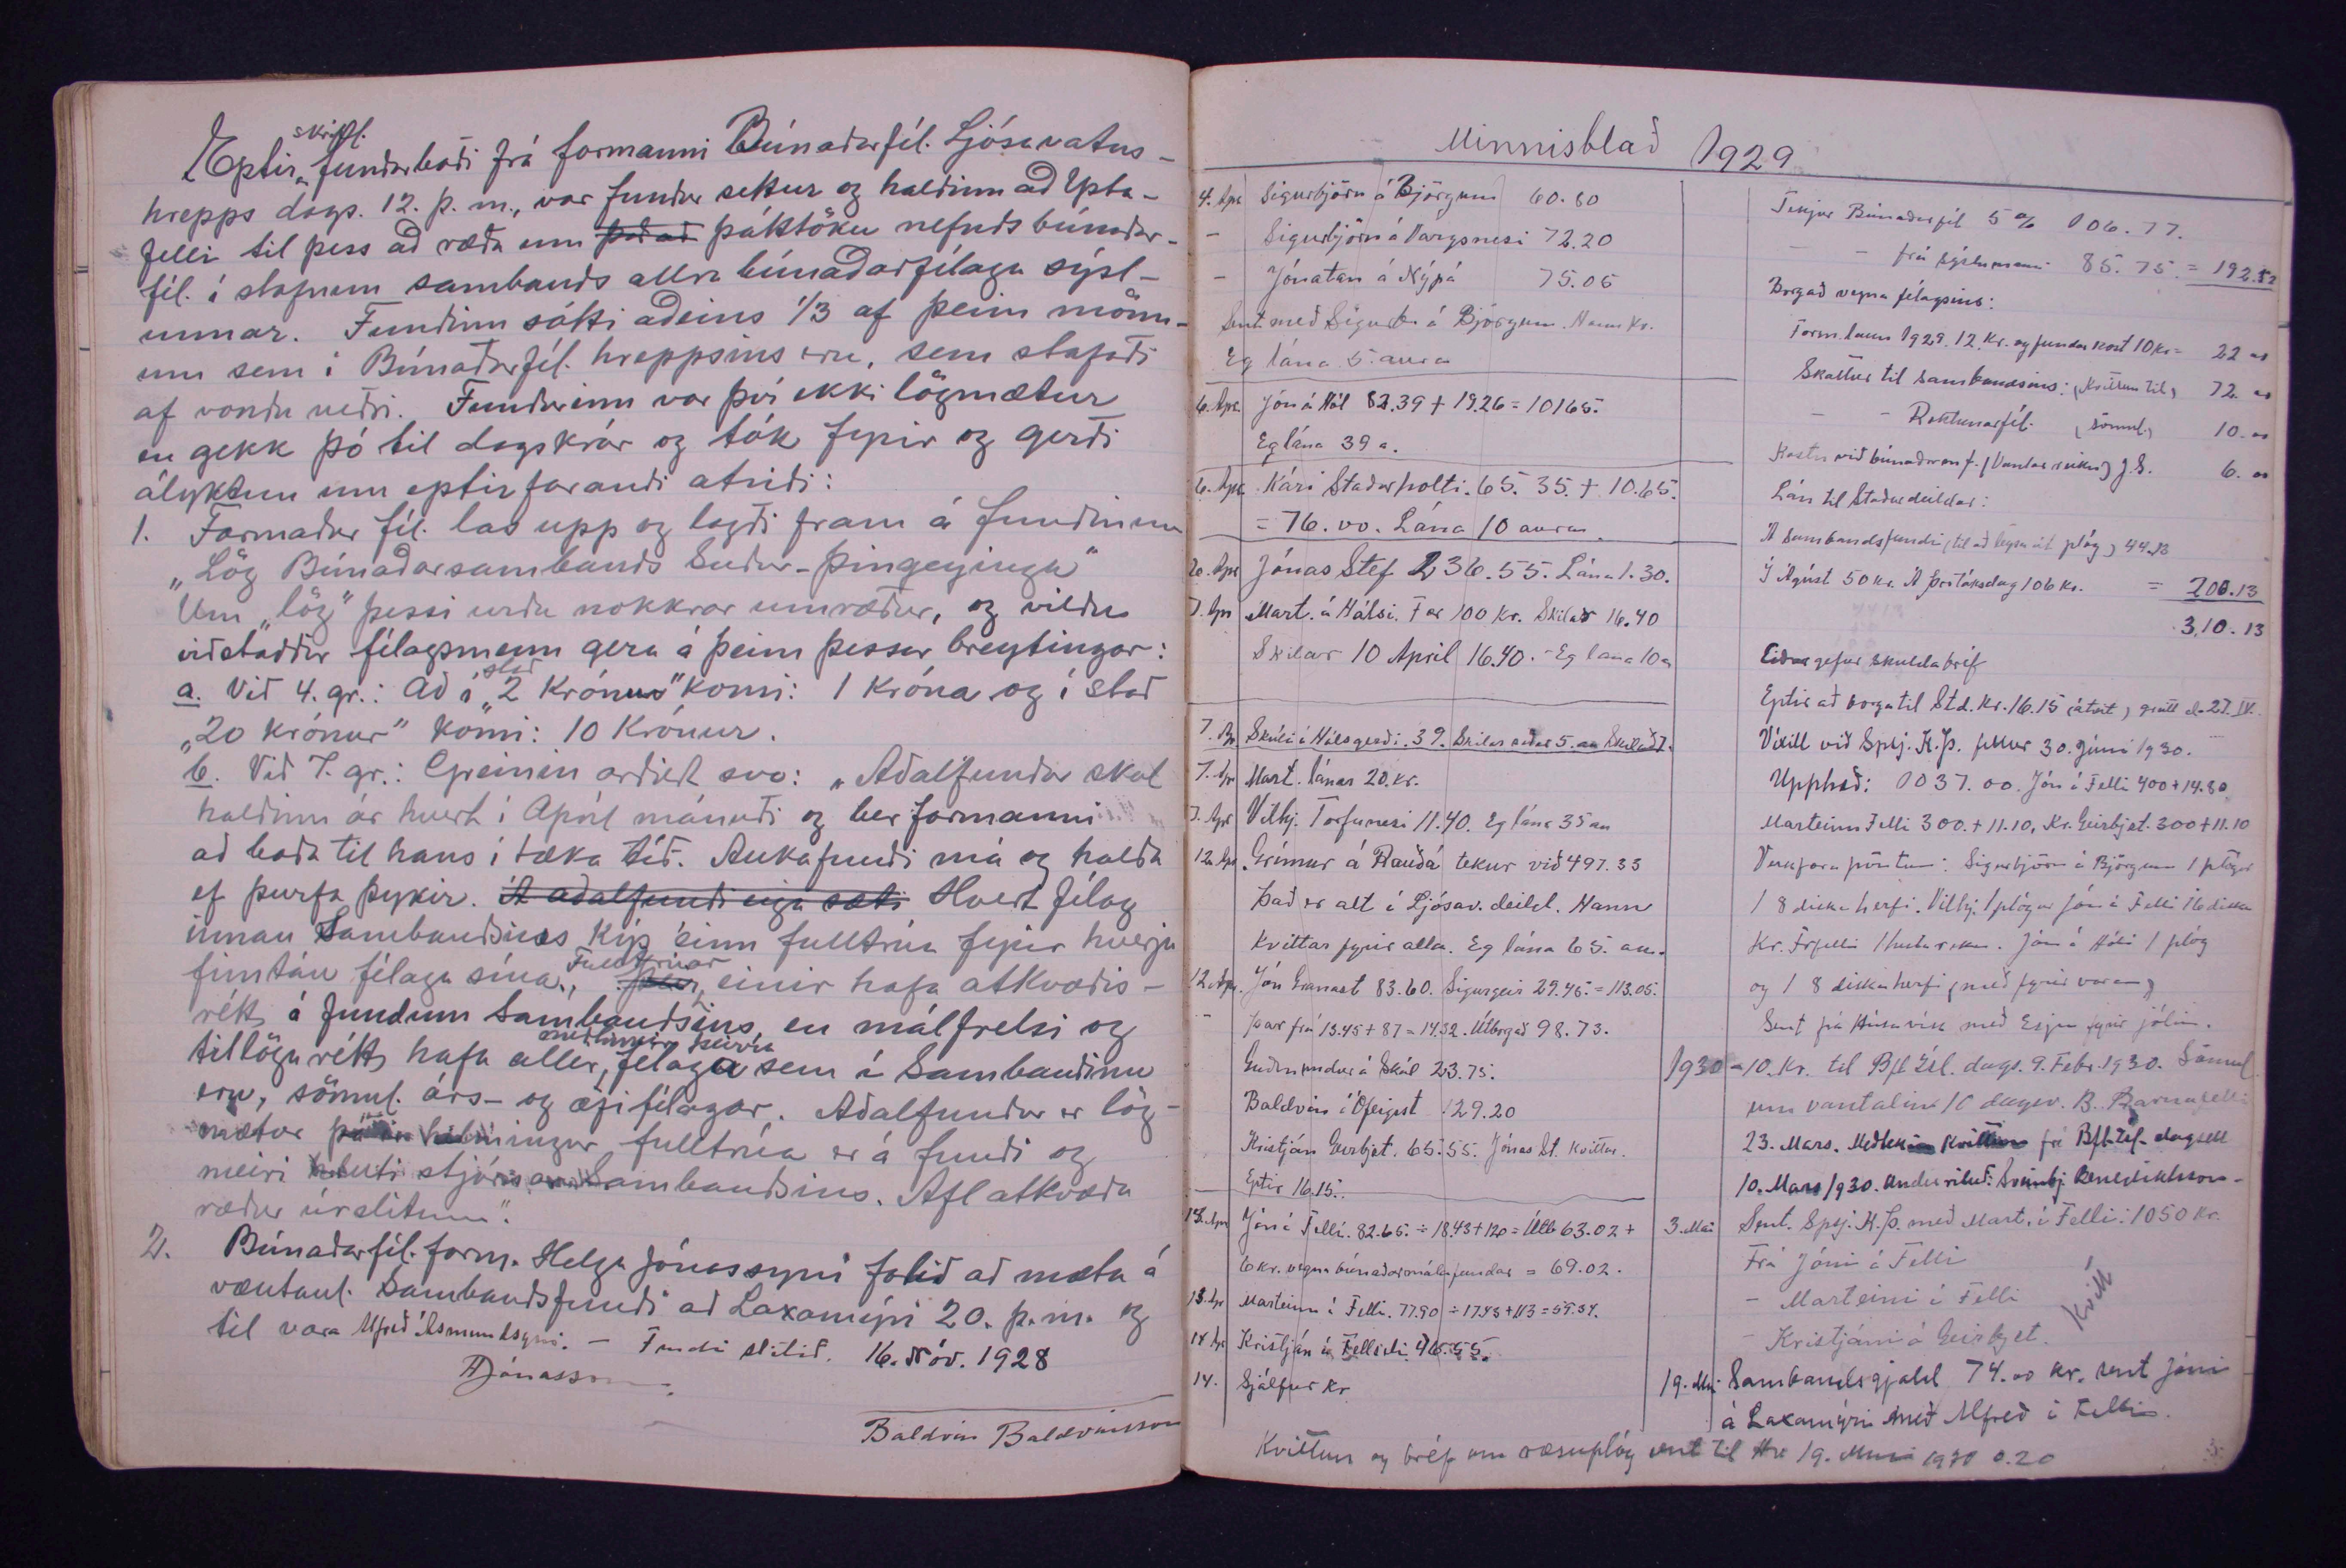 Eptir skrifl. fundarboði frá formanni Búnaðarfél. Ljósavatns-
hrepps dags. 12. þ. m., var fundur settur og haldinn að Ysta-
felli til þess að ræða um það að þáttöku nefnds búnaðar-
fél. í stofnun sambands allra búnaðarfélaga sýsl-
unnar. Fundinn sótti aðeins 1/3 af þeim mönn-
um sem í Búnaðarfél. hreppsins eru, sem stafaði
af vondu veðri. Fundurinn var því ekki lögmætur
en gekk þó til dagskrár og tók fyrir og gerði
ályktun um eptirfarandi atriði:
1. Formaður fél. las upp og lagði fram á fundinum
„Lög Búnaðarsambands Suður-Þingeyinga"
Um „lög" þessi urðu nokkrar umræður, og vildu
viðstaddir félagsmenn gera á þeim þessar breytingar:
a. Við 4. gr.: Að í stað „2 Krónur" komi: 1 Króna og í stað
„20 krónur" komi: 10 Krónur.
b. Við 7. gr.: Greinin orðist svo: „Aðalfundur skal
haldinn ár hvert í Apríl mánuði og ber formanni
að boða til hans í tæka tíð. Aukafundi má og halda
ef þurfa þykir. Á aðalfundi eiga sæti Hvert félag
innan Sambandsins kýs einn fulltrúa fyrir hverja
fimtán félaga sína, Fulltrúar einir hafa atkvæðis-
rétt á fundum Sambandsins, en málfrelsi og
tillögurétt hafa allir meðlimir þeirra félaga sem í Sambandinu
eru, sömul. árs- og æfifélagar. Aðalfundur er lög-
mætur þá er helmingur fulltrúa er á fundi og
meiri hluti stjórnar Sambandsins. Afl atkvæða
ræður úrslitum".
2. Búnaðarfél. form. Helga Jónassyni falið að mæta á
væntanl. Sambandsfundi að Laxamýri 20. þ. m. og
til vara Alfreð Ásmundssyni. - Fundi slitið. 16. Nóv. 1928
HJónasson.
Baldvin Baldvinsson
Minnisblað 1929
4. Apr. Sigurbjörn á Björgum 60.80
- Sigurbjörn á Vargsnesi 72.20
- Jónatan á Nýpá 75.05
Sent með Sigurb. á Björgum. Hann kr.
Eg lána 5. aura
6. Apr. Jón á Hól 82.39 + 19.26 = 10165.
Eg lána 39 a.
6. Apr. Kári Staðarholti. 65. 35. + 10.65.
= 76. oo. Lána 10 aura.
20. Apr. Jónas Stef 236.55. Lána 1.30.
7. Apr Mart. á Hálsi. Fær 100 kr. Skilar 16.40
Skilar 10 April 16.40. - Eg lána 10 a
7. Ap. Skúli í Hálsgerði. 39. Skilar
7. Apr Mart. lánar 20. kr.
7. Apr Vilhj. Torfunesi 11.40. Eg lána 35 au
12. Apr. Grímur á Rauðá tekur við 497.33
Það er alt í Ljósav. deild. Hann
kvittar fyrir alla. Eg lána 65. au.
12. Apr. Jón Granast 83.60. Sigurgeir 29.45. = 113.05.
- þar frá 13.45 + 87 = 14.32. Útborgað 98.73.
Guðmundur á Skál 23.75.
Baldvin í Ófeigst 129.20
Kristján Geirbjst. 65.55. Jónas St. kvittar.
Eptir 16.15.
13. Apr Jón í Felli. 82.65. ÷ 18.43 + 120 = Útb 63.02 +
6 kr. vegna búnaðarmálafundar = 69.02.
13. Apr Marteinn í Felli. 77.90 ÷ 17.43 + 113 = 59.34.
14. Apr Kristján í Fellseli 46.55.
14. Sjálfur kr
Tekjur Búnaðarfél 5 % 106.77.
- - frá sýslumanni 85.75. = 192.52
Borgað vegna félagsins:
Form.laun 1929. 12. kr. og fundar kost 10 kr = 22 oo
Skattur til sambandsins: (Kvittun til) 72. oo
- - Ræktunarfél. (sömul.) 10. oo
Kostn. við búnaðarnf. (Vantar reikn) J.S. 6. oo
Lán til Staðardeildar:
Á Sambandsfundi (til að leysa út plóg) 44.13
Í Ágúst 50 kr. Á þorláksdag 106 kr. = 200.13
310.13
Eiður gefur skuldabréf
Eptir að borga til Std. kr. 16.15
Víxill við Spsj. K.Þ. fellur 30. júní 1930.
Upphæð: 1037.00. Jón í Felli 400 + 14.80
Marteinn Felli 300. + 11.10, Kr. Geirbjst. 300 + 11.10
Verkfæra pöntun: Sigurbjörn á Björgum 1 plógur
1 8 diska herfi. Vilhj. 1 plógur Jón í Felli 16 diska
Jón á Hóli 1 plóg
og 1 8 diska herfi
Sent frá Húsavík með Esju fyrir jólin.
1930 - 10. kr. til Bfl Ísl. dags. 9. Febr. 1930. Sömul.
um vantalin 10 dagsv. B.
23. Mars. Meðtekin Kvittun frá Bfl. Ísl. dagsett
10. Mars 1930. Undirrituð: Svinbj. Benediktsson -
3. Mai Sent. Spsj. K.Þ. með Mart. í Felli: 1050 kr.
Frá Jóni á Felli
- Marteini í Felli
- Kristjáni á Geirbjst.
Kvitt
19. Mai Sambandsgjald 74.oo kr. sent Jóni
á Laxamýri með Alfreð í Felli.
Kvittun og bréf um ræsuplóg sent til 19. Mai 1930 0.20